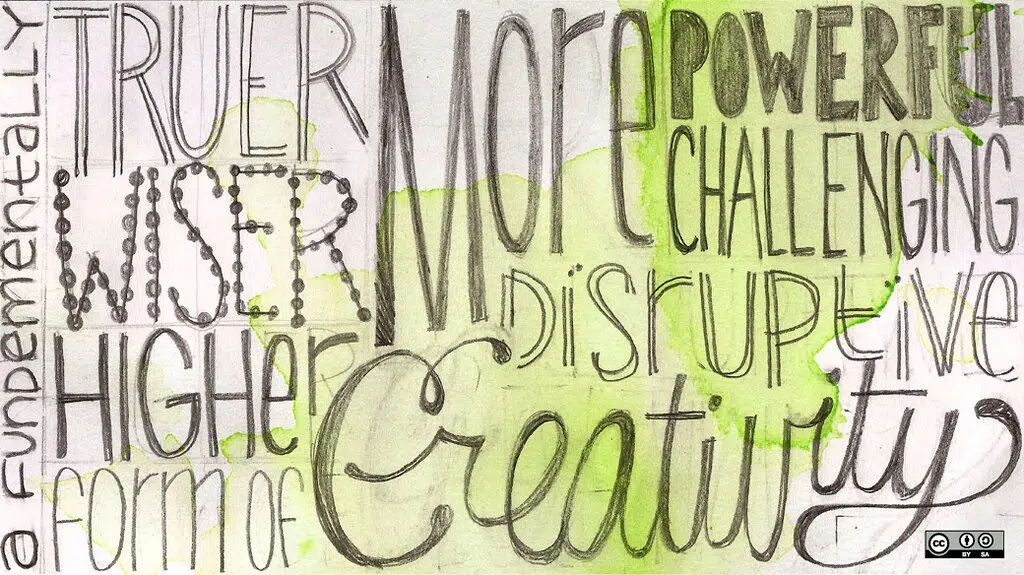 a FUNDEMENtaLLY
TRUER
WISER
HIGHer
form OF
More
POWERFUL
CHALLENGING
DiSrUPtive
Creativity
cc BY SA